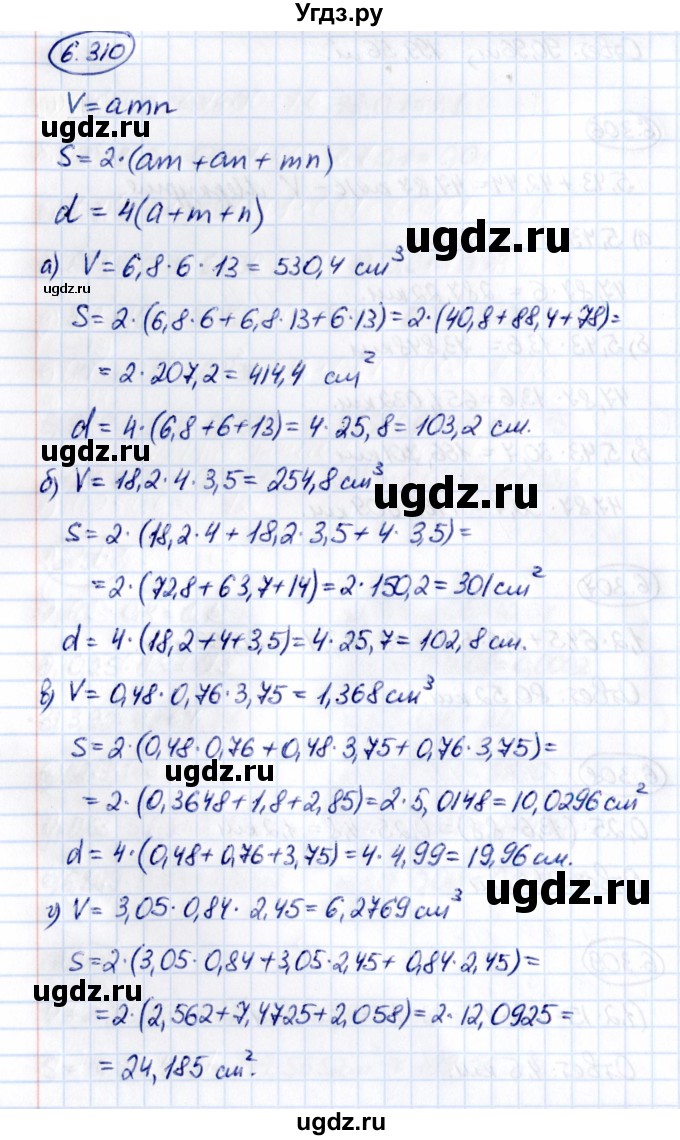 Угдз.ру
6.310
V=amn
ugdz.ru
S=2·(am+an+mn)
d=4(a+m+n)
ugdz.ru
а) V=6,8·6·13=530,4 см³
ugdz.ru
S=2·(6,8·6+6,8·13+6·13)=2·(40,8+88,4+78)=
=2·207,2=414,4 см²
d=4·(6,8+6+13)=4·25,8=103,2 см.
ugdz.ru
б) V=18,2·4·3,5=254,8 см³
ugdz.ru
S=2·(18,2·4+18,2·3,5+4·3,5)=
=2·(72,8+63,7+14)=2·150,2=301 см²
d=4·(18,2+4+3,5)=4·25,7=102,8 см.
в) V=0,48·0,76·3,75=1,368 см³
S=2·(0,48·0,76+0,48·3,75+0,76·3,75)=
ugdz.ru
=2·(0,3648+1,8+2,85)=2·5,0148=10,0296 см²
d=4·(0,48+0,76+3,75)=4·4,99=19,96 см.
ugdz.ru
г) V=3,05·0,84·2,45=6,2769 см³
S=2·(3,05·0,84+3,05·2,45+0,84·2,45)=
ugdz.ru
=2·(2,562+7,4725+2,058)=2·12,0925=
=24,185 см².
ugdz.ru